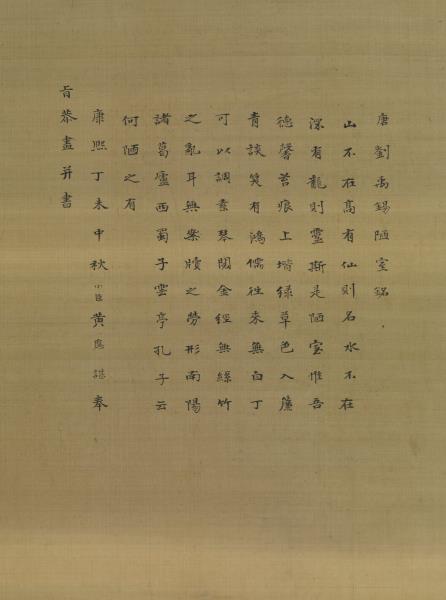 唐劉禹錫陋室銘
山不在高有仙則名水不在
深有龍則靈斯是陋室惟吾
德馨苔痕上堦綠草色入簾
青談笑有鴻儒徃來無白丁
可以調素琴閱金經無絲竹
之亂耳無案牘之勞形南陽
諸葛廬西蜀子雲亭孔子云
何陋之有
康熙丁未中秋小臣黃應諶奉
旨恭畫并書